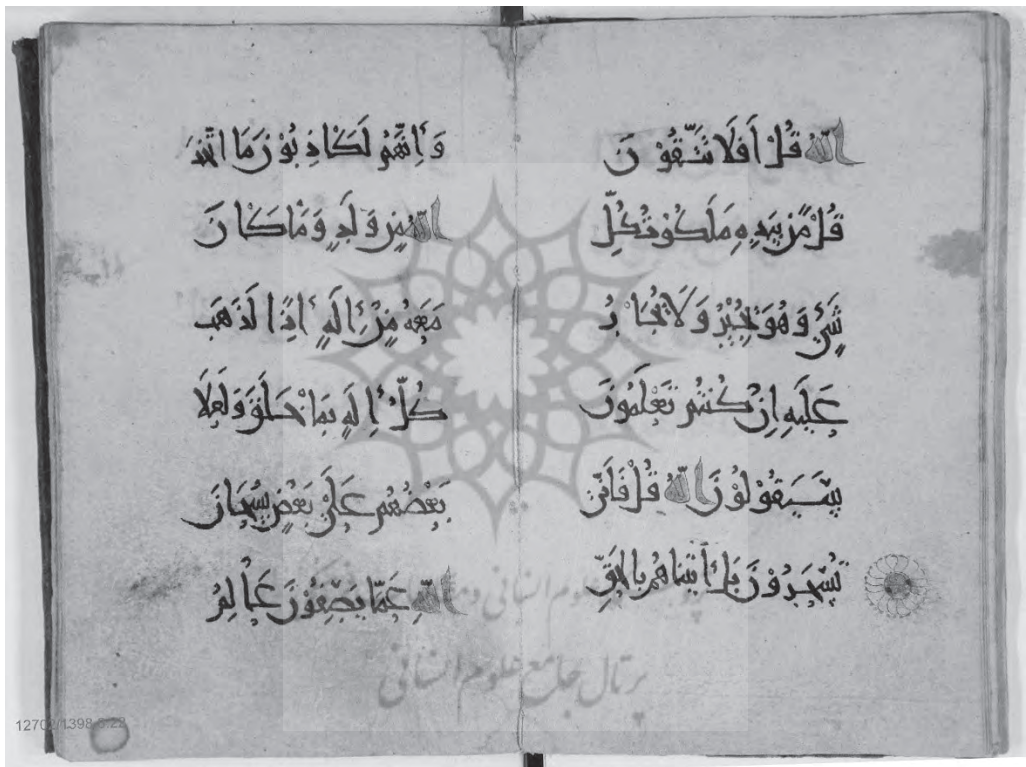 اللّٰهُ قُلْ أَفَلَا تَتَّقُوْنَ
قُلْ مَنْ بِيَدِهِ مَلَكُوْتُ كُلِّ
شَيْءٍ وَهُوَ يُجِيْرُ وَلَا يُجَارُ
عَلَيْهِ إِنْ كُنْتُمْ تَعْلَمُوْنَ
سَيَقُوْلُوْنَ اللّٰهُ قُلْ فَأَنّٰى
تُسْحَرُوْنَ بَلْ أَتَيْنَاهُمْ بِالْحَقِّ
وَإِنَّهُمْ لَكَاذِبُوْنَ مَا اتَّخَذَ
اللّٰهُ مِنْ وَلَدٍ وَمَا كَانَ
مَعَهُ مِنْ إِلٰهٍ إِذًا لَذَهَبَ
كُلُّ إِلٰهٍ بِمَا خَلَقَ وَلَعَلَا
بَعْضُهُمْ عَلٰى بَعْضٍ سُبْحَانَ
اللّٰهِ عَمَّا يَصِفُوْنَ عَالِمِ
علوم انسانی و
پرتال جامع علوم انسانی